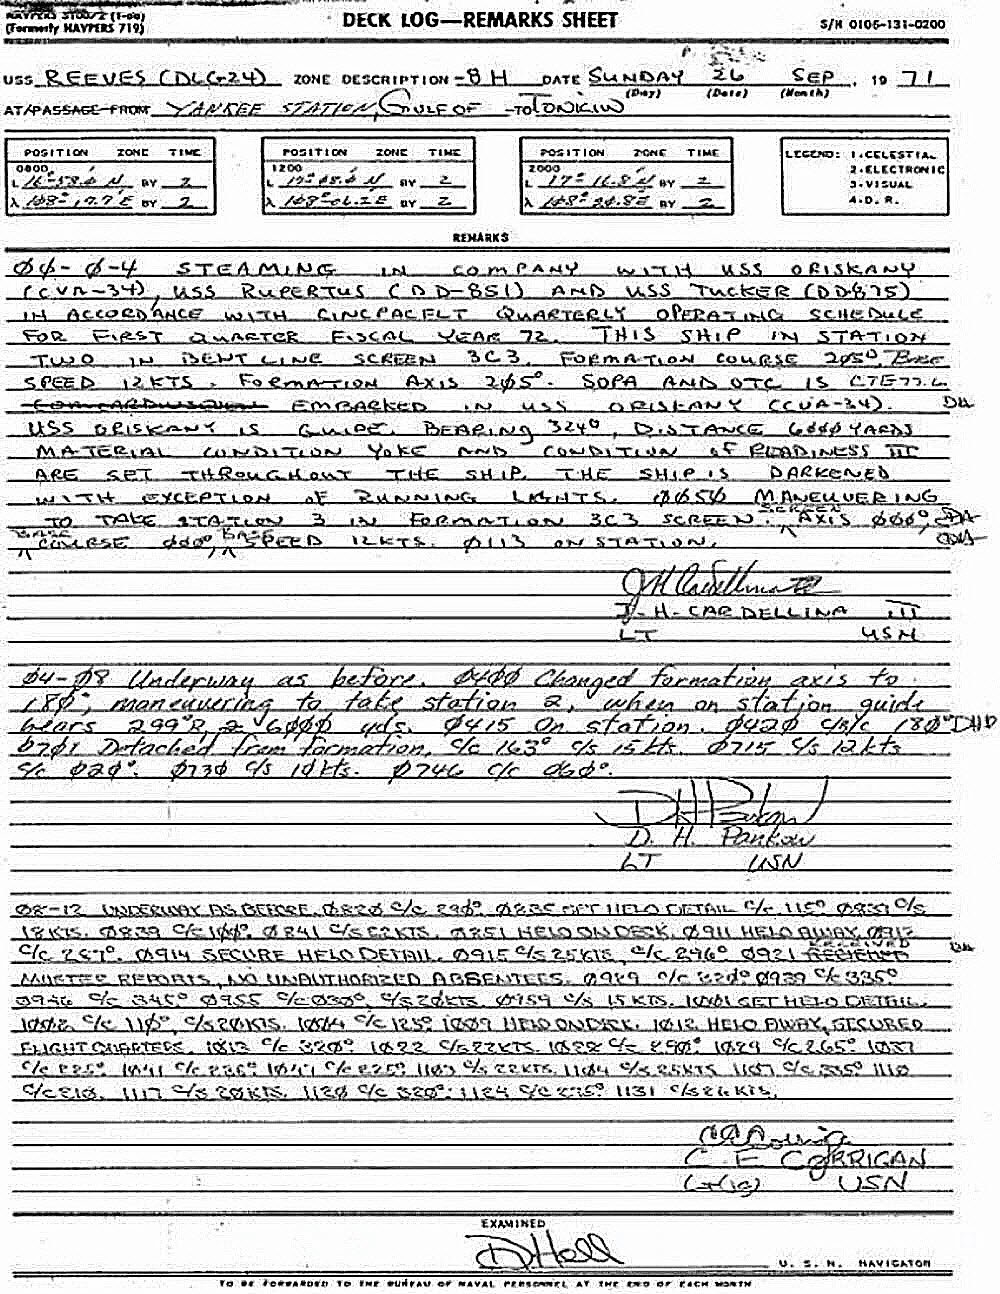 NAVPERS 3100/2 (1-66)
(Formerly NAVPERS 719)
DECK LOG—REMARKS SHEET
S/N 0105-131-0200
USS REEVES (DLG-24) ZONE DESCRIPTION -8H DATE SUNDAY 26 SEP, 19 71
(Day) (Date) (Month)
AT/PASSAGE FROM YANKEE STATION, GULF OF TO TONKIN
POSITION ZONE TIME POSITION ZONE TIME POSITION ZONE TIME LEGEND: 1-CELESTIAL
0800 1200 2000 2-ELECTRONIC
L 16°-58.0 N BY 2 L 17°-05.0 N BY 2 L 17°-11.8 N BY 2 3-VISUAL
λ 108°-17.7 E BY 2 λ 108°-06.2 E BY 2 λ 108°-20.8 E BY 2 4-D. R.
REMARKS
ØØ-Ø4 STEAMING IN COMPANY WITH USS ORISKANY
(CVA-34), USS RUPERTUS (DD-851) AND USS TUCKER (DD875)
IN ACCORDANCE WITH CINCPACFLT QUARTERLY OPERATING SCHEDULE
FOR FIRST QUARTER FISCAL YEAR 72. THIS SHIP IN STATION
TWO IN BENT LINE SCREEN 3C3. FORMATION COURSE 205°, BASE
SPEED 12KTS. FORMATION AXIS 205°. SOPA AND OTC IS CTE77.6
EMBARKED IN USS ORISKANY (CVA-34).
USS ORISKANY IS GUIDE, BEARING 324°, DISTANCE 6000 YARDS
MATERIAL CONDITION YOKE AND CONDITION OF READINESS III
ARE SET THROUGHOUT THE SHIP. THE SHIP IS DARKENED
WITH EXCEPTION OF RUNNING LIGHTS. ØØ5Ø MANEUVERING
TO TAKE STATION 3 IN FORMATION 3C3 SCREEN. SCREEN AXIS ØØØ°,
BASE COURSE ØØØ°, BASE SPEED 12KTS. Ø113 ON STATION.
J. H. CARDELLINA III
LT USN
Ø4-Ø8 Underway as before. Ø4ØØ Changed formation axis to
18Ø°, maneuvering to take station 2, when on station guide
bears 299°R, 6ØØØ yds. Ø415 On station. Ø42Ø C/B/C 18Ø° DHP
Ø7Ø1 Detached from formation, c/c 163° c/s 15 kts. Ø715 c/s 12 kts
c/c Ø2Ø°. Ø73Ø c/s 1Ø kts. Ø746 c/c Ø6Ø°.
D. H. Pankow
LT USN
Ø8-12 UNDERWAY AS BEFORE. Ø82Ø C/C 29Ø°. Ø835 SET HELO DETAIL C/C 115° Ø837 C/S
18KTS. Ø839 C/C 1ØØ°. Ø841 C/S 22KTS. Ø851 HELO ON DECK. Ø911 HELO AWAY. Ø912
C/C 287°. Ø914 SECURE HELO DETAIL. Ø915 C/S 25KTS, C/C 296° Ø921 RECEIVED
MUSTER REPORTS, NO UNAUTHORIZED ABSENTEES. Ø929 C/C 32Ø° Ø939 C/C 335°
Ø946 C/C 345° Ø955 C/C Ø3Ø°, C/S 2ØKTS. Ø959 C/S 15 KTS. 1ØØ1 SET HELO DETAIL.
1ØØ2 C/C 11Ø°, C/S 2ØKTS. 1ØØ4 C/C 125° 1ØØ9 HELO ON DECK. 1Ø12 HELO AWAY, SECURED
FLIGHT QUARTERS. 1Ø13 C/C 32Ø° 1Ø22 C/S 27KTS. 1Ø28 C/C 29Ø° 1Ø29 C/C 265° 1Ø37
C/C 225° 1Ø41 C/C 235° 1Ø47 C/C 225° 11Ø3 C/S 22KTS. 11Ø4 C/S 25KTS 11Ø7 C/C 335° 111Ø
C/C 31Ø. 1117 C/S 2ØKTS. 112Ø C/C 32Ø° 1124 C/C 275° 1131 C/S 26KTS.
C E CORRIGAN
LTJG USN
EXAMINED
U. S. N. NAVIGATOR
TO BE FORWARDED TO THE BUREAU OF NAVAL PERSONNEL AT THE END OF EACH MONTH